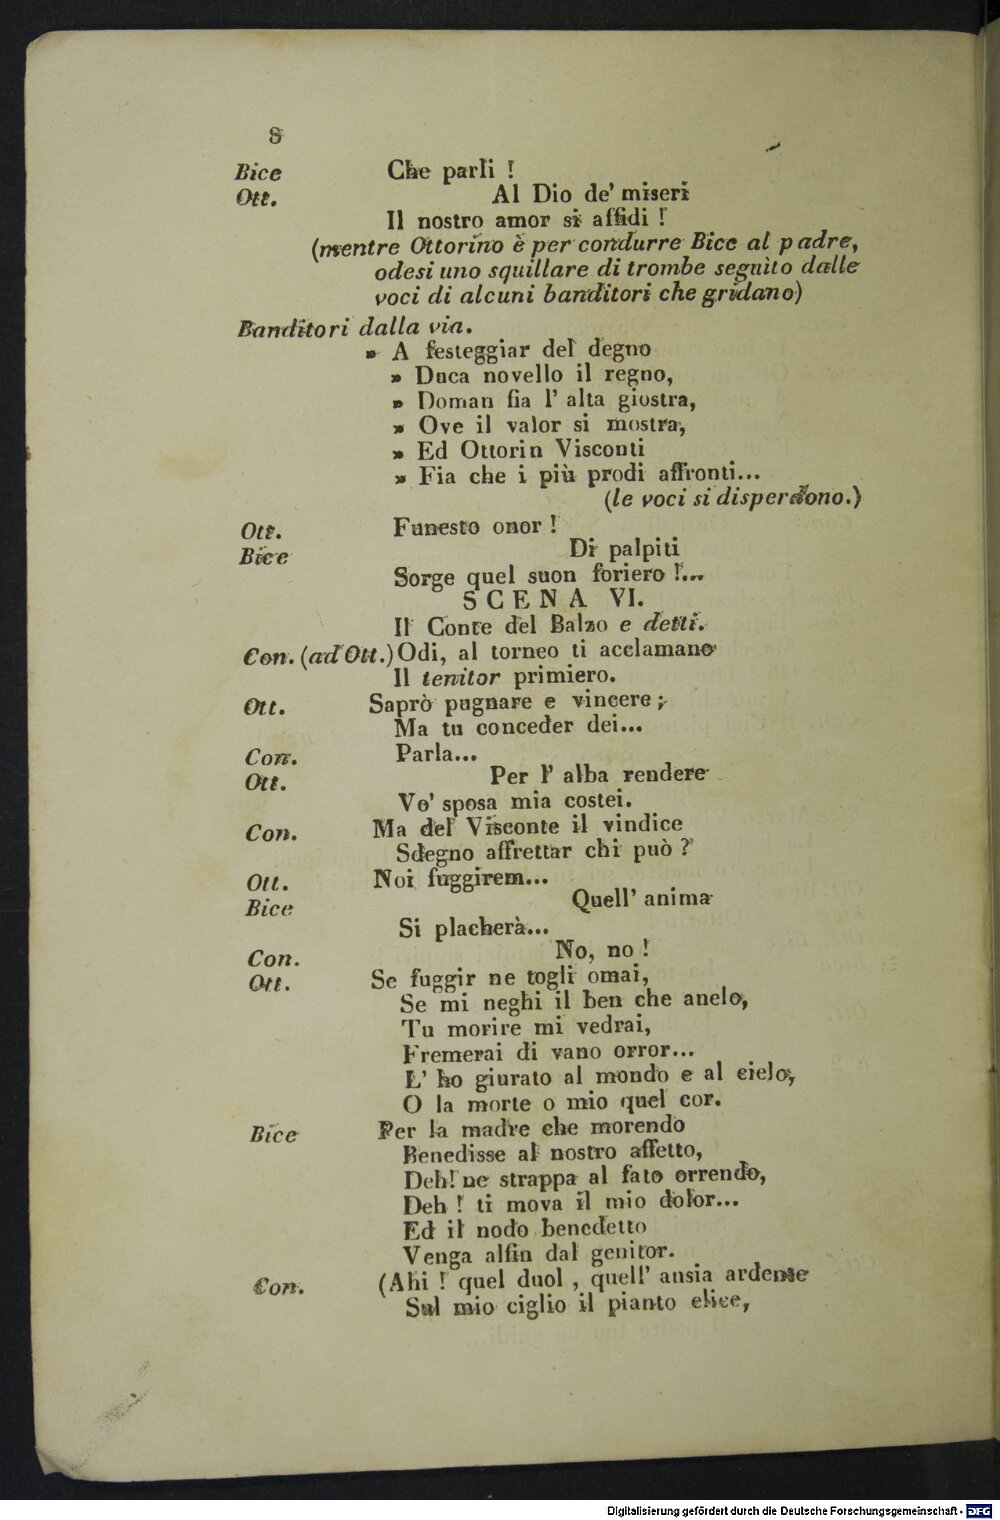 8
Bice Che parli !
Ott. Al Dio de' miseri
Il nostro amor si affidi !
(mentre Ottorino è per condurre Bice al padre,
odesi uno squillare di trombe seguìto dalle
voci di alcuni banditori che gridano)
Banditori dalla via.
» A festeggiar del degno
» Duca novello il regno,
» Doman fia l' alta giostra,
» Ove il valor si mostra,
» Ed Ottorin Visconti
» Fia che i più prodi affronti...
(le voci si disperdono.)
Ott. Funesto onor !
Bice Di palpiti
Sorge quel suon foriero !...
SCENA VI.
Il Conte del Balzo e detti.
Con. (ad Ott.) Odi, al torneo ti acclamano
Il tenitor primiero.
Ott. Saprò pugnare e vincere ;
Ma tu conceder dei...
Con. Parla...
Ott. Per l' alba rendere
Vo' sposa mia costei.
Con. Ma del Visconte il vindice
Sdegno affrettar chi può ?
Ott. Noi fuggirem...
Bice Quell' anima
Si placherà...
Con. No, no !
Ott. Se fuggir ne togli omai,
Se mi neghi il ben che anelo,
Tu morire mi vedrai,
Fremerai di vano orror...
L' ho giurato al mondo e al cielo,
O la morte o mio quel cor.
Bice Per la madre che morendo
Benedisse al nostro affetto,
Deh! ne strappa al fato orrendo,
Deh ! ti mova il mio dolor...
Ed il nodo benedetto
Venga alfin dal genitor.
Con. (Ahi ! quel duol , quell' ansia ardente
Sul mio ciglio il pianto elice,
Digitalisierung gefördert durch die Deutsche Forschungsgemeinschaft - DFG